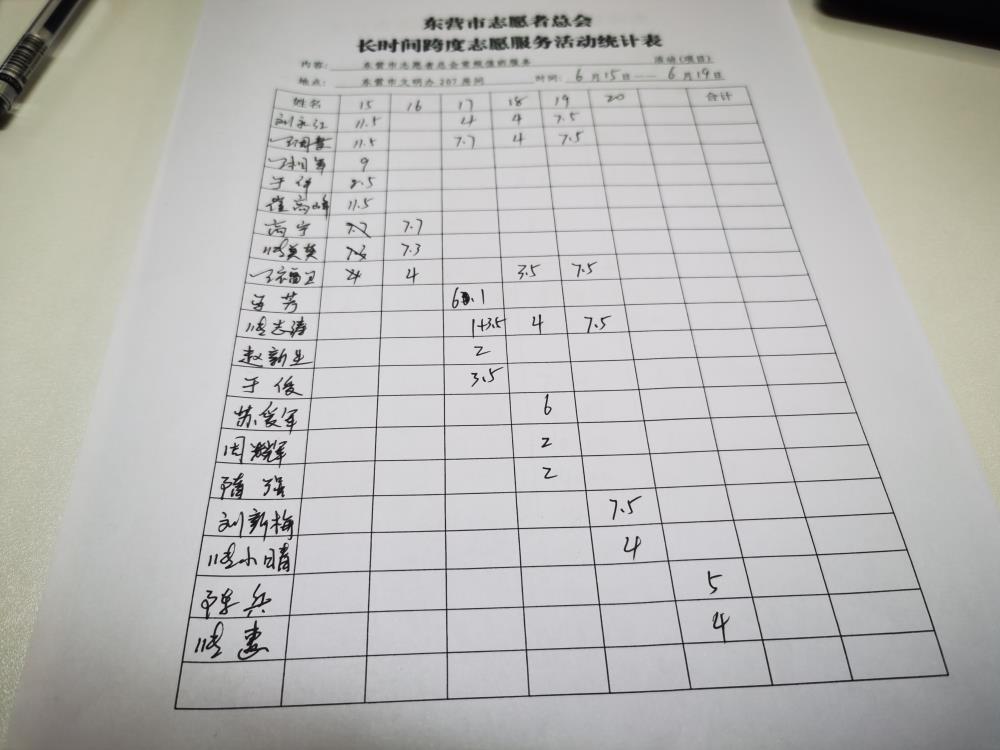 东营市志愿者总会
长时间跨度志愿服务活动统计表
内容: 东营市志愿者总会常规值班服务 活动(项目)
地点: 东营市文明办207房间 时间: 6月15日——6月19日
姓名 15 16 17 18 19 20 合计
刘永江 11.5 4 4 7.5
11.5 7.7 4 7.5
9
于 8.5
崔高峰 11.5
高宁 7.7 7.7
张英英 7.3 7.3
福卫 4 4 3.5 7.5
芳 6.1
张志涛 1+3.5 4 7.5
赵新业 2
于俊 3.5
苏爱军 6
周耀军 2
隋强 2
刘新梅 7.5
张小晴 4
陈兵 5
张惠 4